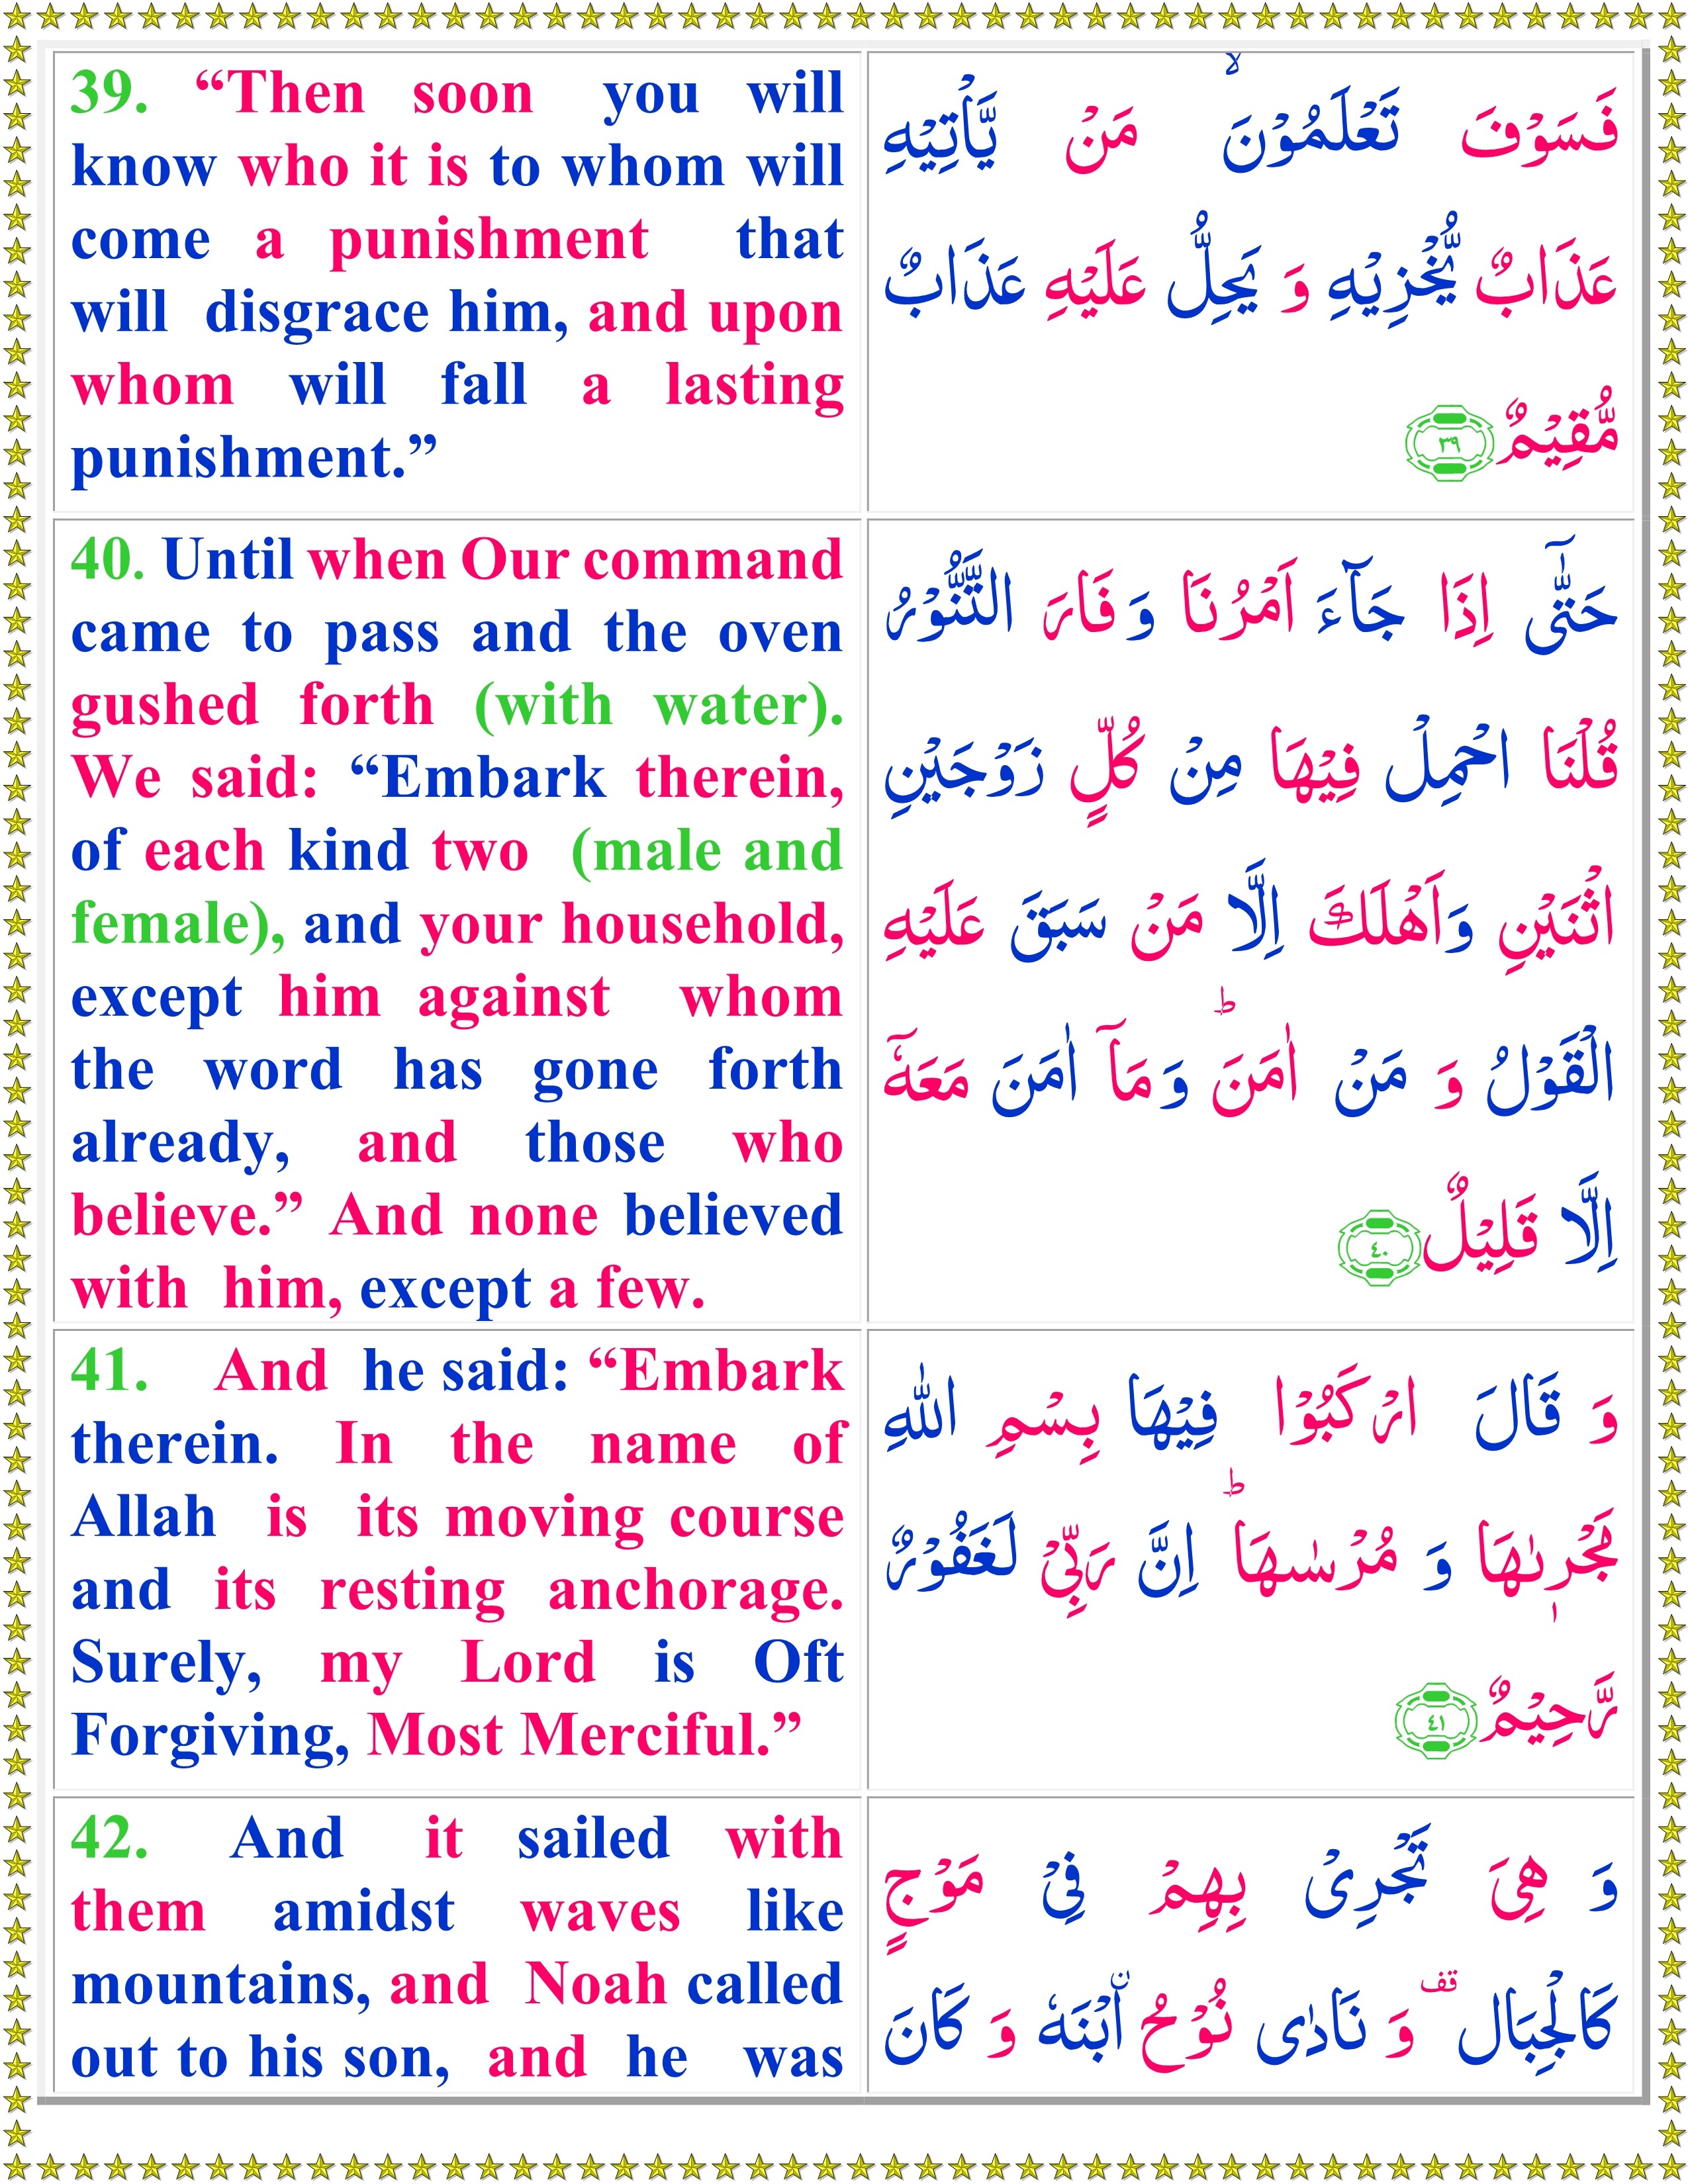 39. “Then soon you will
know who it is to whom will
come a punishment that
will disgrace him, and upon
whom will fall a lasting
punishment.”
فَسَوْفَ تَعْلَمُوْنَ ۙ مَنْ يَّاْتِيْهِ
عَذَابٌ يُّخْزِيْهِ وَ يَحِلُّ عَلَيْهِ عَذَابٌ
مُّقِيْمٌ ٣٩
40. Until when Our command
came to pass and the oven
gushed forth (with water).
We said: “Embark therein,
of each kind two (male and
female), and your household,
except him against whom
the word has gone forth
already, and those who
believe.” And none believed
with him, except a few.
حَتّٰۤى اِذَا جَآءَ اَمْرُنَا وَ فَارَ التَّنُّوْرُ
قُلْنَا احْمِلْ فِيْهَا مِنْ كُلٍّ زَوْجَيْنِ
اثْنَيْنِ وَاَهْلَكَ اِلَّا مَنْ سَبَقَ عَلَيْهِ
الْقَوْلُ وَ مَنْ اٰمَنَ ؕ وَمَاۤ اٰمَنَ مَعَهٗۤ
اِلَّا قَلِيْلٌ ٤٠
41. And he said: “Embark
therein. In the name of
Allah is its moving course
and its resting anchorage.
Surely, my Lord is Oft
Forgiving, Most Merciful.”
وَ قَالَ ارْكَبُوْا فِيْهَا بِسْمِ اللّٰهِ
مَجْرٖىهَا وَ مُرْسٰىهَا ؕ اِنَّ رَبِّيْ لَغَفُوْرٌ
رَّحِيْمٌ ٤١
42. And it sailed with
them amidst waves like
mountains, and Noah called
out to his son, and he was
وَ هِيَ تَجْرِيْ بِهِمْ فِيْ مَوْجٍ
كَالْجِبَالِ ۫ وَ نَادٰى نُوْحُ اۨبْنَهٗ وَ كَانَ